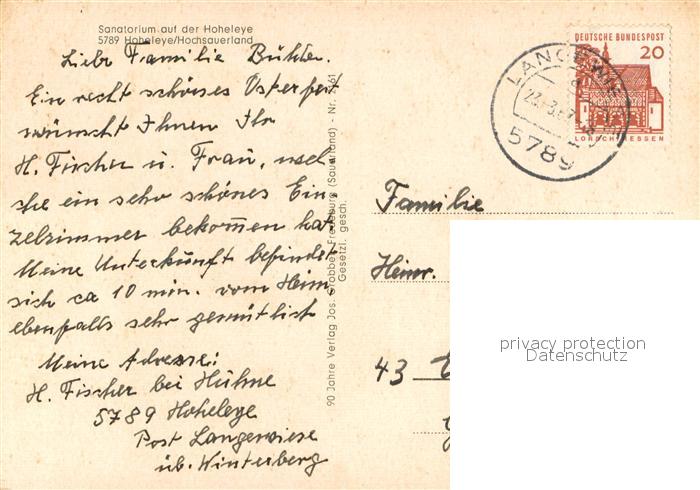 Sanatorium auf der Hoheleye
5789 Hoheleye/Hochsauerland
Liebe Familie Bühler.
Ein recht schönes Osterfest
wünscht Ihnen Ihr
H. Fischer u. Frau, wel-
che ein sehr schönes Ein-
zelzimmer bekommen hat
Meine Unterkunft befindet
sich ca 10 min. vom Heim
ebenfalls sehr gemütlich
Meine Adresse:
H. Fischer bei Hühne
5789 Hoheleye
Post Langewiese
üb. Winterberg
90 Jahre Verlag Jos. Grobbel, Fredeburg (Sauerland) - Nr.
Gesetzl. gesch.
DEUTSCHE BUNDESPOST
20
LORSCH/HESSEN
LANGEWIE
5789
Familie
Heinr.
43
privacy protection
Datenschutz